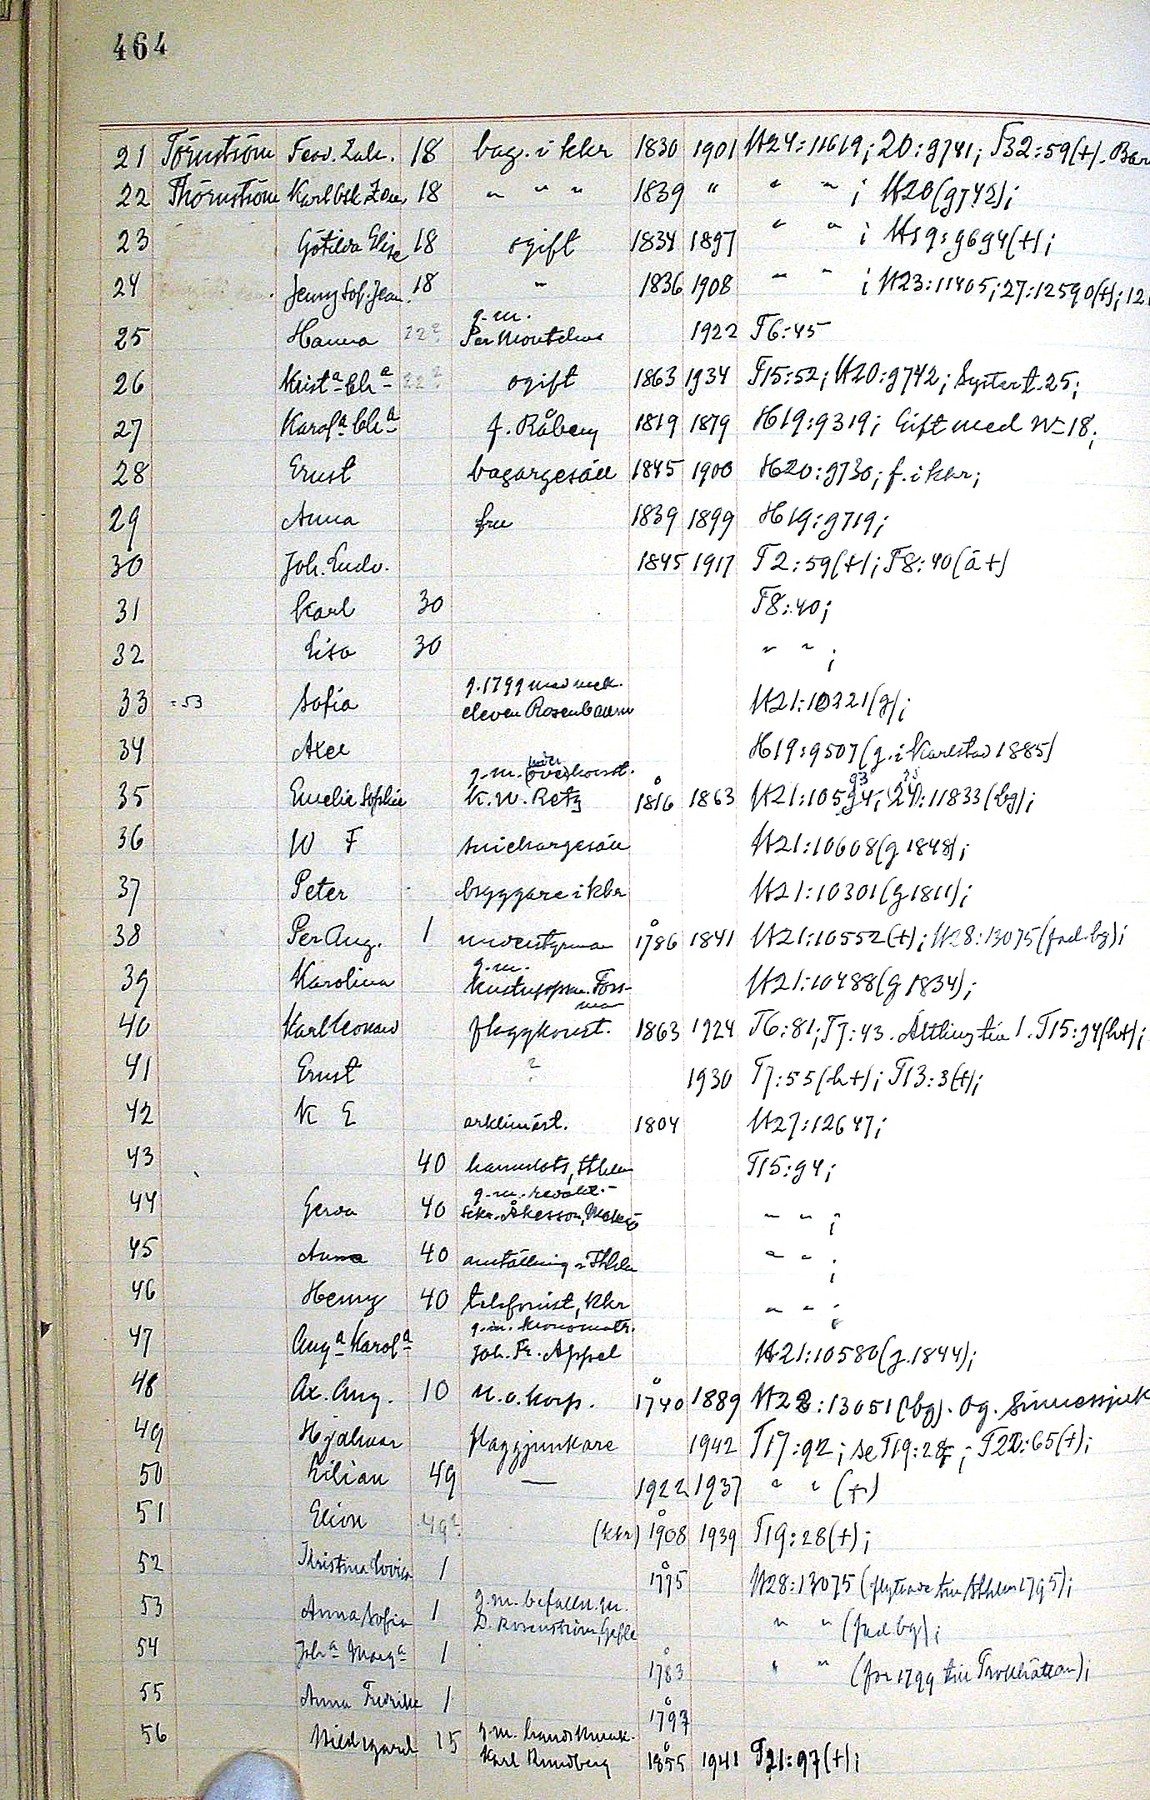 464
21 Törnström Feod. Zak. 18 bag. i kkr 1830 1901 H24:11619; 20:9741; T32:59(+). Bar
22 Thörnström Karl Osk. Zen. 18 " " " 1839 " " " ; H20(9742);
23 Gotilda Elise 18 ogift 1834 1897 " " ; H19:9694(+);
24 Jenny Sof. Jean. 18 " 1836 1908 " " ; H23:11405; 27:12590(+); 12
g.m.
25 Hanna 22? Per 1922 T6:45
26 Krist<sup>a</sup> Ch<sup>a</sup> 22? ogift 1863 1934 T15:52; H20:9742; Syster t. 25;
27 Karol<sup>a</sup> Ch<sup>a</sup> f. Råberg 1819 1879 H19:9319; Gift med N=18;
28 Ernst bagargesäll 1845 1900 H20:9730; f. i kkr;
29 Anna fru 1839 1899 H19:9719;
30 Joh. Ludv. 1845 1917 T2:59(+); T8:40(å+)
31 Karl 30 T8:40;
32 Lisa 30 " " ;
g. 1799 med mek.
33 =53 Sofia eleven Rosenbaum H21:10221(g);
34 Axel H19:9507(g. i Karlstad 1885)
g.m. överkonst.
35 Emelie Sophie K.W. Retz 1816 1863 H21:10594; 24:11833(bg);
36 W F snickargesäll H21:10608(g 1848);
37 Peter bryggare i kkr H21:10301(g 1811);
38 Per Aug. 1 1786 1841 H21:10552(+); H28:13075(fad. bg);
g.m.
39 Karolina Forss-
man H21:10488(g 1834);
40 Karl Leonard flaggkonst. 1863 1924 T6:81; T7:43. Ättling till 1. T15:94(h+);
41 Ernst ? 1930 T7:55(h+); T13:3(+);
42 K E arklimäst. 1804 H27:12647;
43 40 T15:94;
g.m. redakt.-
44 Gerda 40 sekr. Åkesson, Malmö " " ;
45 Anna 40 anställning i Sthlm " " ;
46 Henny 40 telefonist, kkr " " ;
g.m. kronomatr.
47 Aug<sup>a</sup> Karol<sup>a</sup> Joh. Fr. Appel H21:10580(g. 1844);
48 Ax. Aug. 10 u.o. korp. 1740 1889 H28:13051(bg). Og. Sinnessjuk
49 Hjalmar flaggjunkare 1942 T17:92; se T19:28; T22:65(+);
50 Lilian 49 — 1922 1937 " " (+)
51 49? (kkr) 1908 1939 T19:28(+);
52 Kristina Lovisa 1 1775 H28:13075 (flyttade till Sthlm 1795);
g.m. befalln.m.
53 Anna Sofia 1 D. Rosenström, Gefle " " (fad. bg);
54 Joh<sup>a</sup> Marg<sup>a</sup> 1 1783 " " (for 1799 till Trollhättan);
55 Anna Fredrika 1 1797
g.m. handsmak.
56 Hildegard 15 Karl Rundberg 1855 1941 T21:97(+);